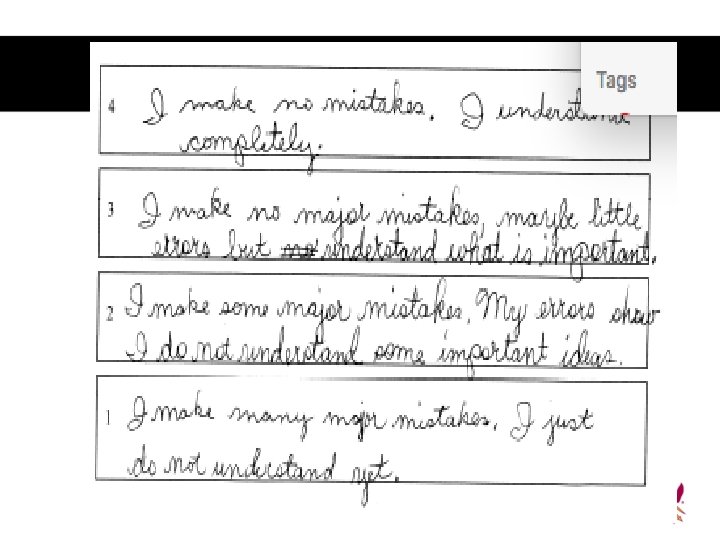 Tags
4 I make no mistakes. I understand
completely.
3 I make no major mistakes, maybe little
errors but no understand what is important.
2 I make some major mistakes. My errors show
I do not understand some important ideas.
1 I make many major mistakes. I just
do not understand yet.